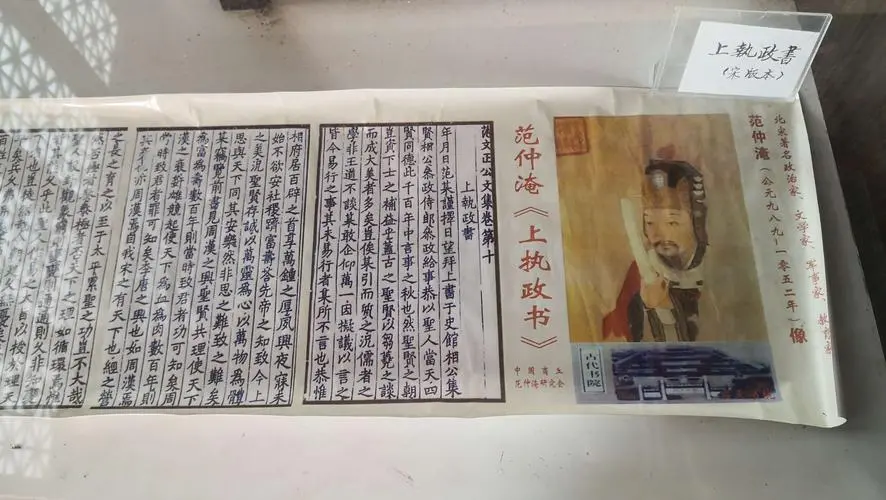 上執政書
（宋版本）
北宋著名政治家、文学家、军事家、教育家
范仲淹（公元九八九～一零五二年）像
古代书院
范仲淹《上执政书》
中国商丘
范仲淹研究会
范文正公文集卷第十
上執政書
年月日范某謹擇日望拜上書于史館相公集
賢相公參政侍郎參政給事恭以聖人當天四
賢同德此千百年中言事之秋也然聖賢之朝
豈資下士之補益乎蓋古之聖賢以芻蕘之談
而成大美者多矣豈俟某引而質之况儒者之
學非王道不談某敢企仰萬一因擬議以言之
皆今易行之事其未易行者某所不言也恭惟
相府居百辟之首享萬鍾之厚夙興夜寐未
始不欲安社稷躋富壽答先帝之知致今上
之美况聖賢存誠以萬靈為心以萬物為體
思與天下同其安樂然非思之難致之難矣
某竊覽前書見周漢之興聖賢共理使天下
為富為壽數百年則當時致君者功可知矣周
漢之衰奸雄競起使天下為血為肉數百年則
當時致君者罪可知矣李唐之興也如周漢焉
其衰也亦周漢焉自我宋之有天下也經之營
之長之育之以至于太平累聖之功豈不大哉